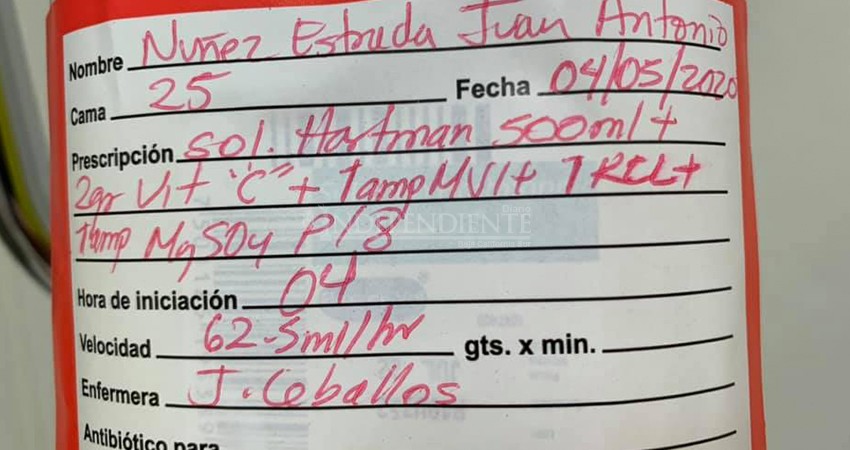 Nombre Nuñez Estrada Juan Antonio
Cama 25 Fecha 04/05/2020
Prescripción sol. Hartman 500ml +
2gr Vit "C" + 1amp MVI +
1amp MgSO4 P/8
Hora de iniciación 04
Velocidad 62.5ml/hr gts. x min.
Enfermera J. Ceballos
Antibiótico para
INDEPENDIENTE